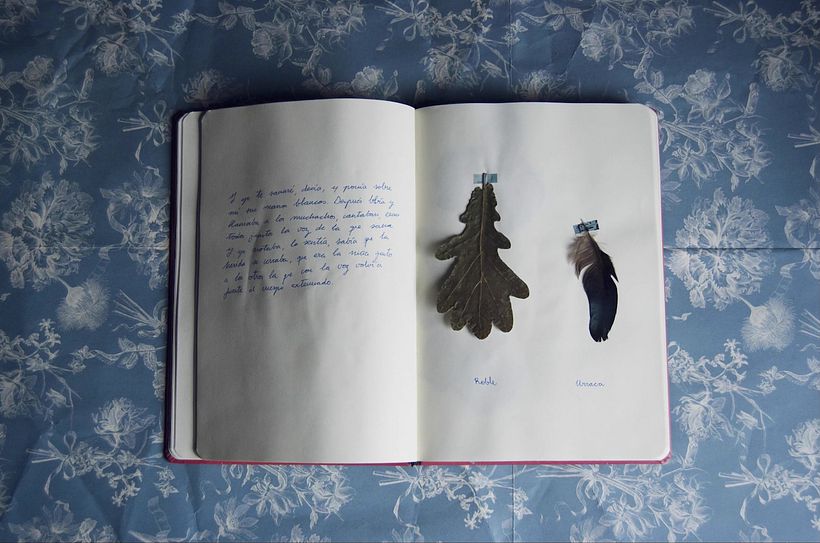 Y yo te sanaré, decía, y ponía sobre
mí sus manos blancas. Después iba y
llamaba a los muchachos, cantaban, eran
todos junto la voz de la que sana
Y yo notaba, lo sentía, sabía que la
herida se cerraba, que era la mía junto
a la otra la que con la voz volvía
junto al cuerpo exterminado.
Roble
Urraca